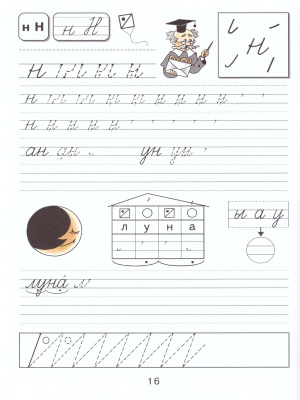 н Н н Н
Н
н
н н н н н н н н н н н
н н н н н
ан ан ун ун
л у н а
ы а у
луна́ л
16